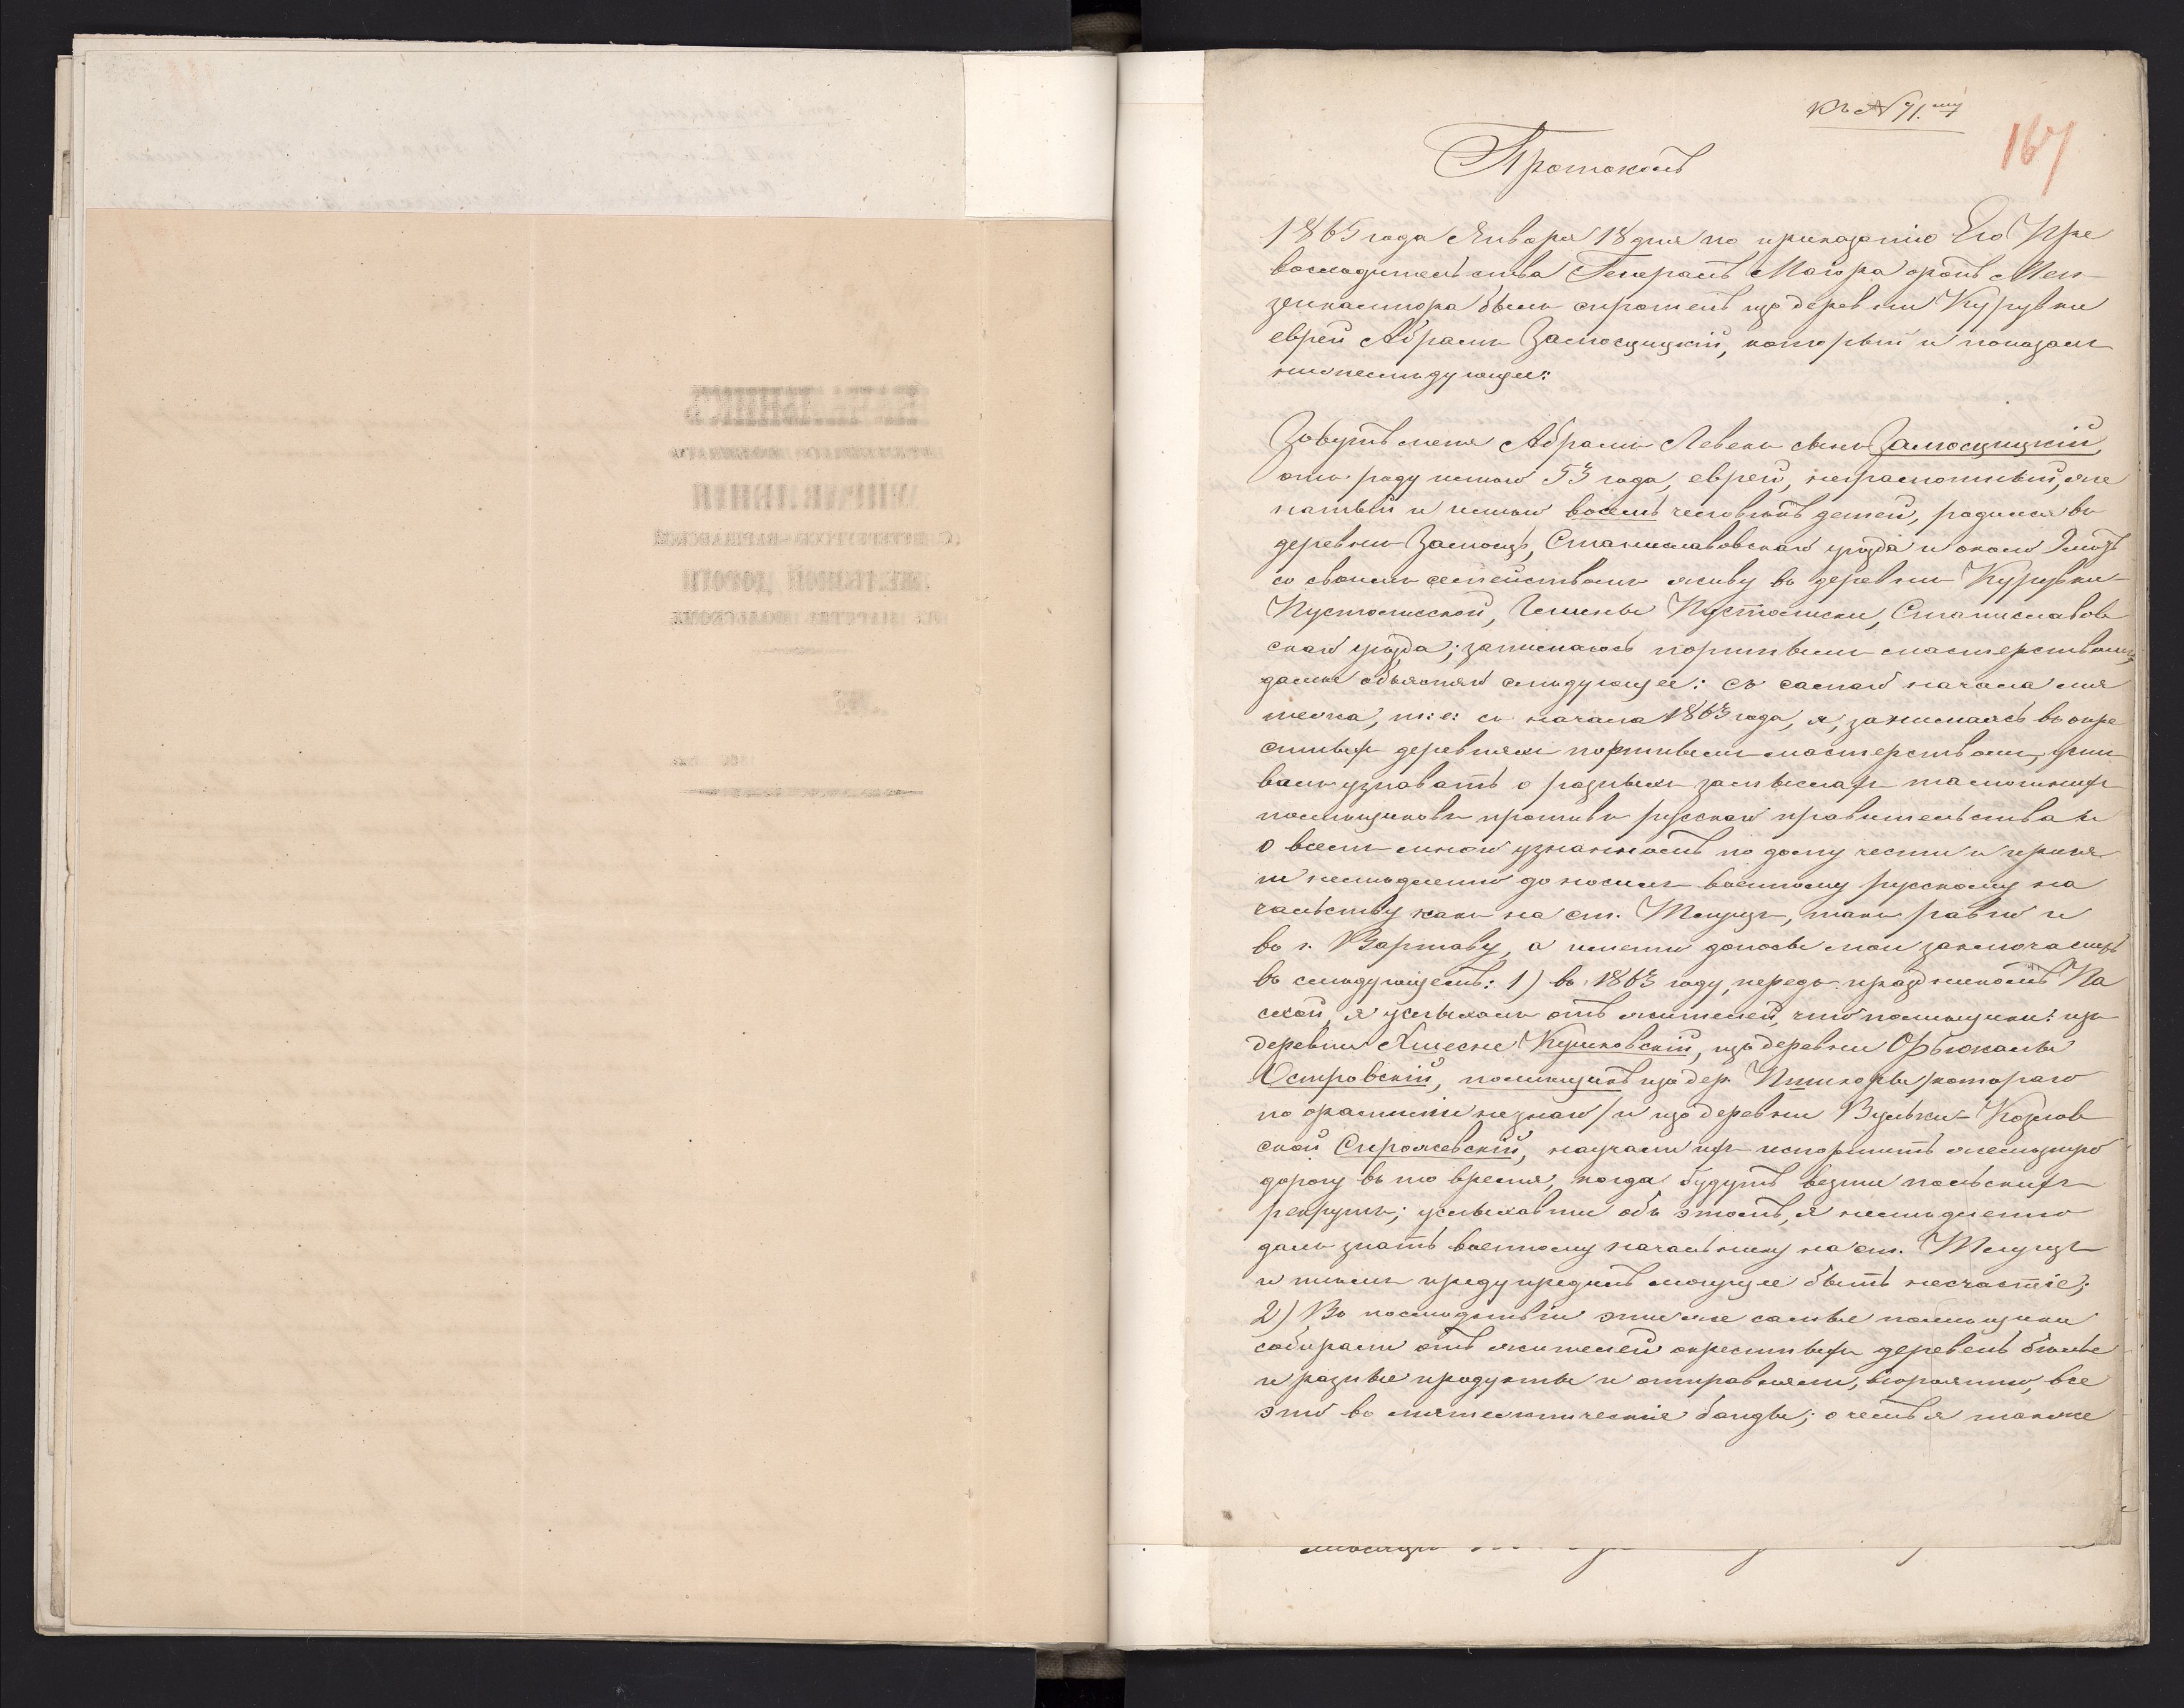 къ № 71.му
167
Протоколъ
1865 года Января 18 дня по приказанію Его Пре
восходительства Генералъ Маіора фонъ Мен
зенкампфа былъ спрошенъ изъ деревни Куру́вки
еврей Абрамъ Замосцицкій, который и показалъ
нижеслѣдующее:
Зовутъ меня Абрамъ Левекъ сынъ Замосцицкій,
отъ роду имѣю 53 года, еврей, неграмотный, же
натый и имѣю восемь человѣкъ дѣтей, родился въ
деревнѣ Замосцъ, Станиславовскаго уѣзда и около лѣтъ
со своимъ семействомъ живу въ деревнѣ Курувки
Пустомиской, Гмины Пустомиски, Станиславов
скаго уѣзда; занимаюсь портнымъ мастерствомъ,
далѣе объясняю слѣдующее: съ самаго начала мя
тежа, т: е: съ начала 1863 года, я, занимаясь въ окре
стныхъ деревняхъ портнымъ мастерствомъ, успѣ
валъ узнавать о разныхъ замыслахъ тамошнихъ
помѣщиковъ противъ русскаго правительства и
о всемъ мною узнанномъ по долгу чести и прися
ги немедленно доносилъ военному русскому на
чальству какъ на ст. Тлущъ, такъ равно и
въ г. Варшаву, а именно доносы мои заключались
въ слѣдующемъ: 1) въ 1863 году, передъ праздникомъ Па
схой, я услыхалъ отъ жителей, что помѣщики: изъ
деревни Хмесне Куликовскій, изъ деревни
Островскій, помѣщикъ изъ дер. котораго
по фамиліи незнаю/ и изъ деревни Вульки-Козлов
ской Сѣрожевскій, научали ихъ испортить желѣзную
дорогу въ то время, когда будутъ везти польскихъ
рекрутъ; услыхавши объ этомъ, я немедленно
далъ знать военному начальнику на ст. Тлущъ
и тѣмъ предупредилъ могущее быть несчастіе;
2) Въ послѣдствіи эти же самые помѣщики
собирали отъ жителей окрестныхъ деревень бѣлье
и разные продукты и отправляли, вѣроятно, все
это въ мятежническіе банды; о чемъ я также